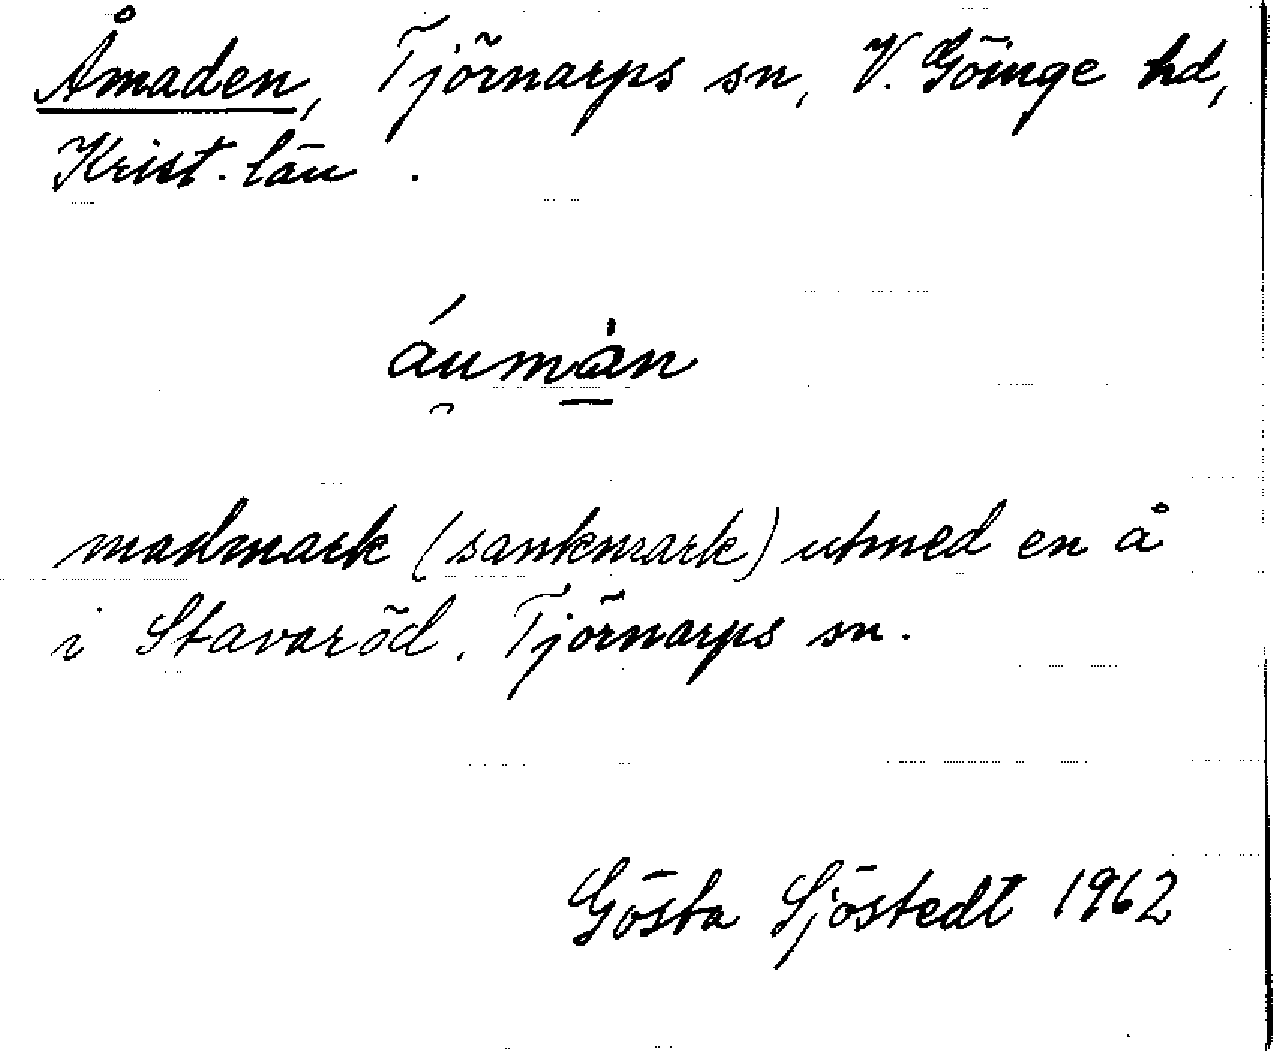 Åmaden, Tjörnarps sn, V. Göinge hd,
Krist. län.
áu̯mȧ̱n
madmark (sankmark) utmed en å
i Stavaröd, Tjörnarps sn.
Gösta Sjöstedt 1962